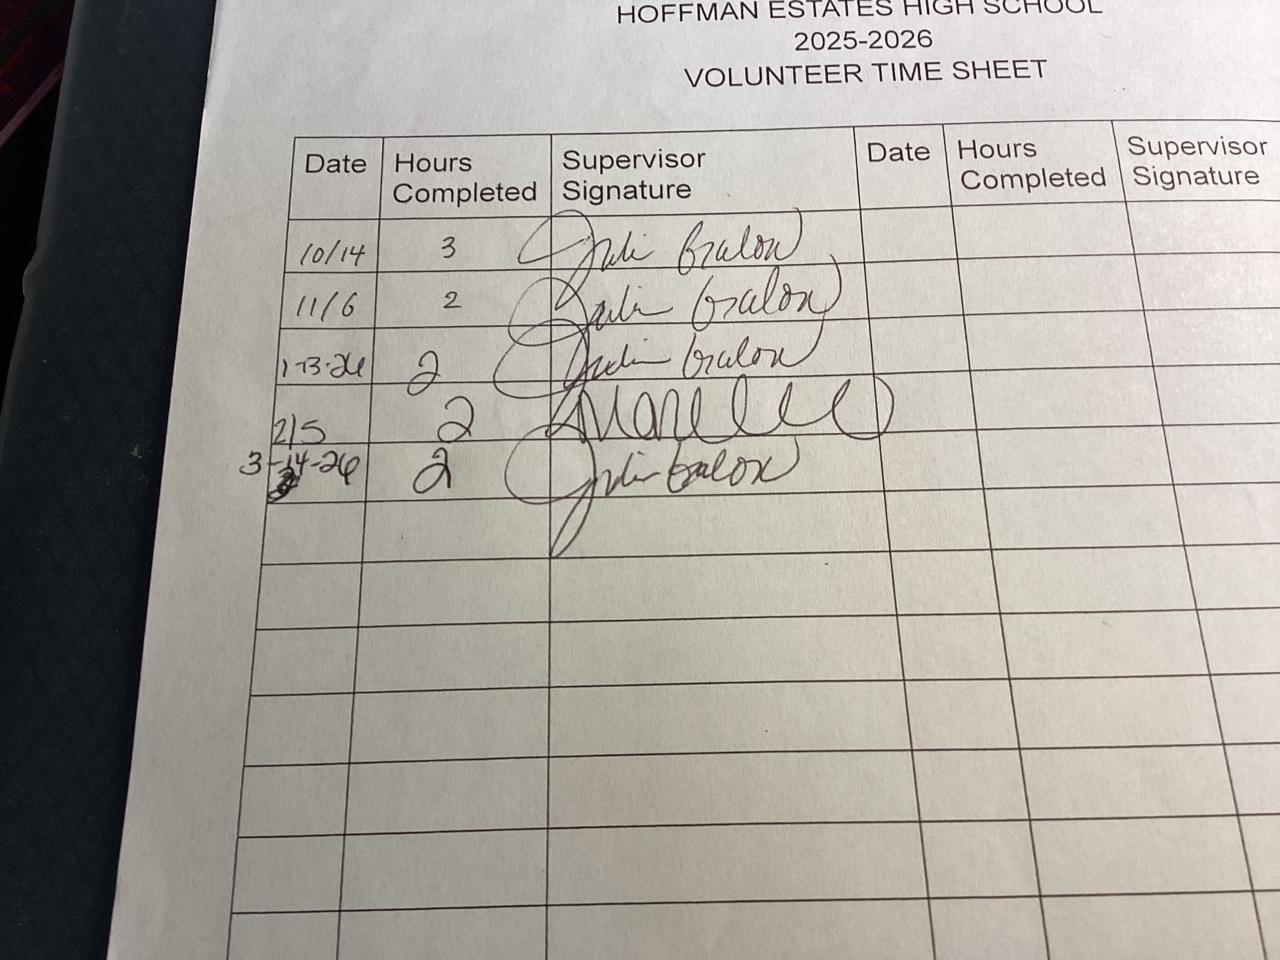 HOFFMAN ESTATES HIGH SCHOOL
2025-2026
VOLUNTEER TIME SHEET
Date Hours Completed Supervisor Signature Date Hours Completed Supervisor Signature
10/14 3 Julie Gralow
11/6 2 Julie Gralow
1-13-26 2 Julie Gralow
2/5 2
3-14-26 2 Julie Gralow